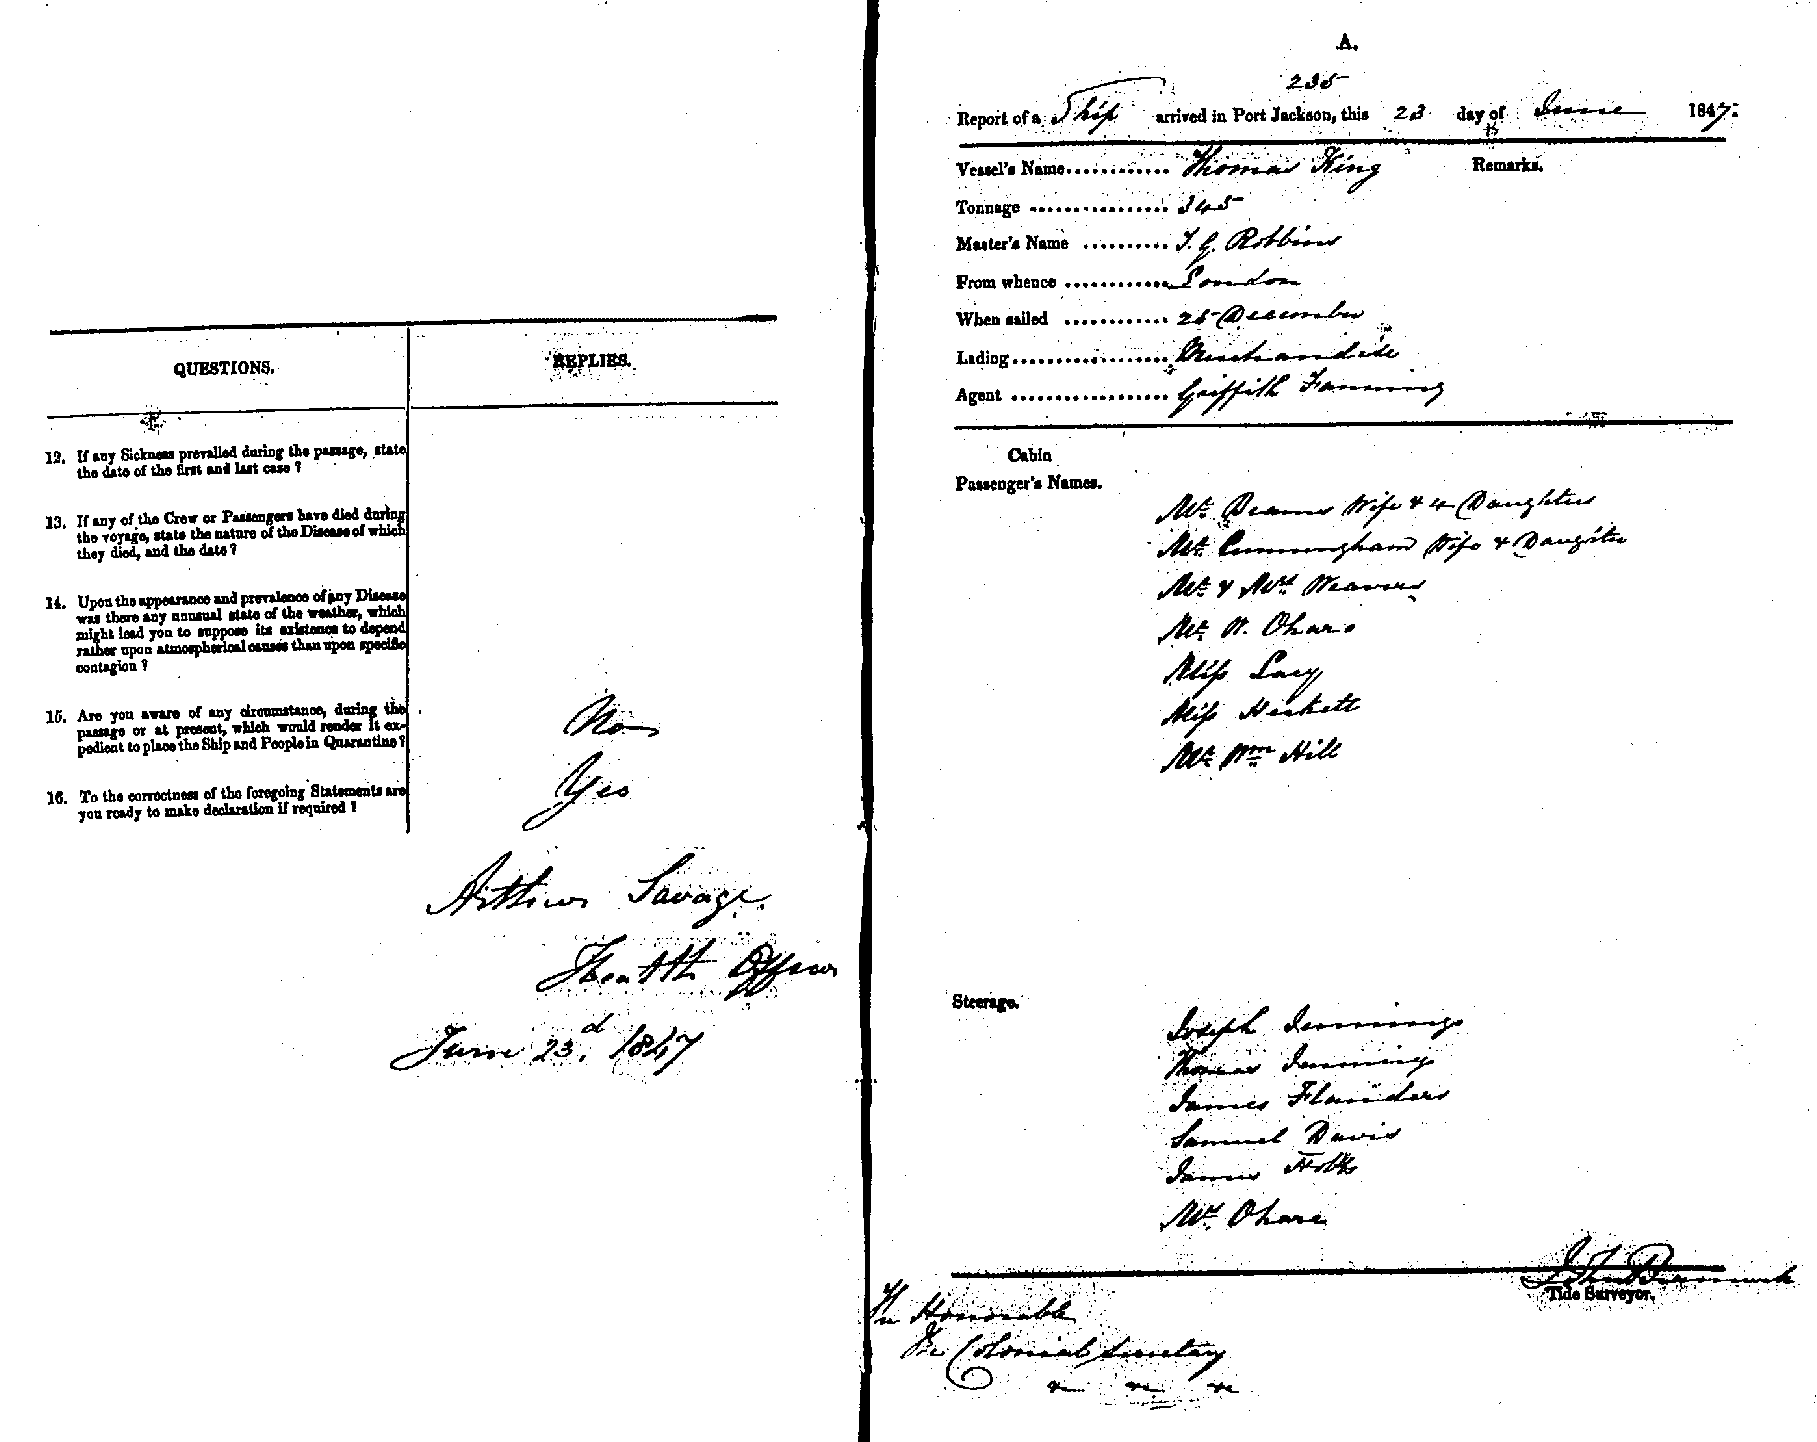 QUESTIONS.
REPLIES.
12. If any Sickness prevailed during the passage, state
the date of the first and last case ?
13. If any of the Crew or Passengers have died during
the voyage, state the nature of the Disease of which
they died, and the date ?
14. Upon the appearance and prevalence of any Disease
was there any unusual state of the weather, which
might lead you to suppose its existence to depend
rather upon atmospherical causes than upon specific
contagion ?
15. Are you aware of any circumstance, during the
passage or at present, which would render it ex-
pedient to place the Ship and People in Quarantine ?
No
16. To the correctness of the foregoing Statements are
you ready to make declaration if required ?
Yes
Arthur Savage
Health Officer
June 23d. 1847
A.
235
Report of a Ship arrived in Port Jackson, this 23 day of June 1847.
Vessel's Name............ Thomas King Remarks.
Tonnage ................ 345
Master's Name .......... Robbins
From whence ............ London
When sailed ............ December
Lading.................. Merchandise
Agent .................. Griffith Fanning
Cabin
Passenger's Names.
Mr. Wife & 4 Daughters
Mr. Cunningham Wife & Daughter
Mr. & Mrs. Weavers
Mr. W. Ohara
Miss Lacy
Miss Heskett
Mr. Wm Hill
Steerage.
Joseph Jennings
Thomas Jennings
James Flanders
Samuel Davis
James
Ohara
John
Tide Surveyor.
The Honorable
The Colonial Secretary
&c &c &c